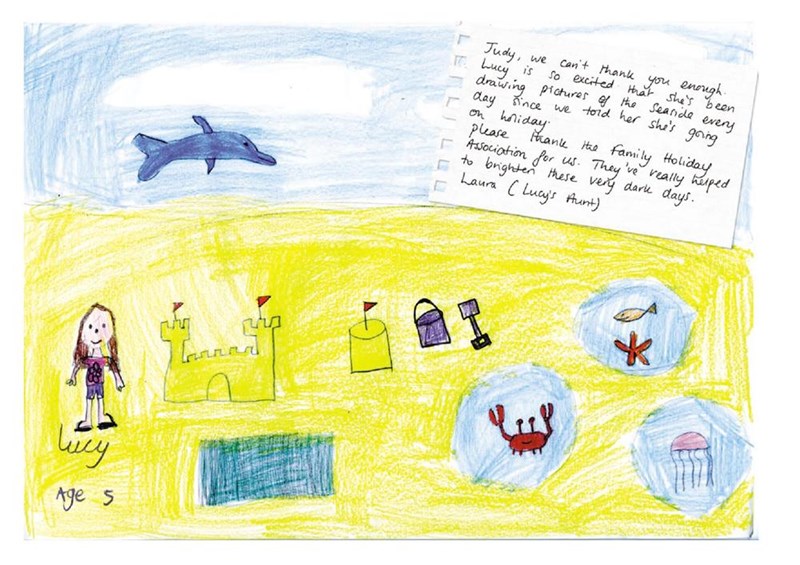 Judy, we can't thank you enough.
Lucy is so excited that she's been
drawing pictures of the seaside every
day since we told her she's going
on holiday.
Please thank the Family Holiday
Association for us. They've really helped
to brighten these very dark days.
Laura (Lucy's Aunt)
Lucy
Age 5